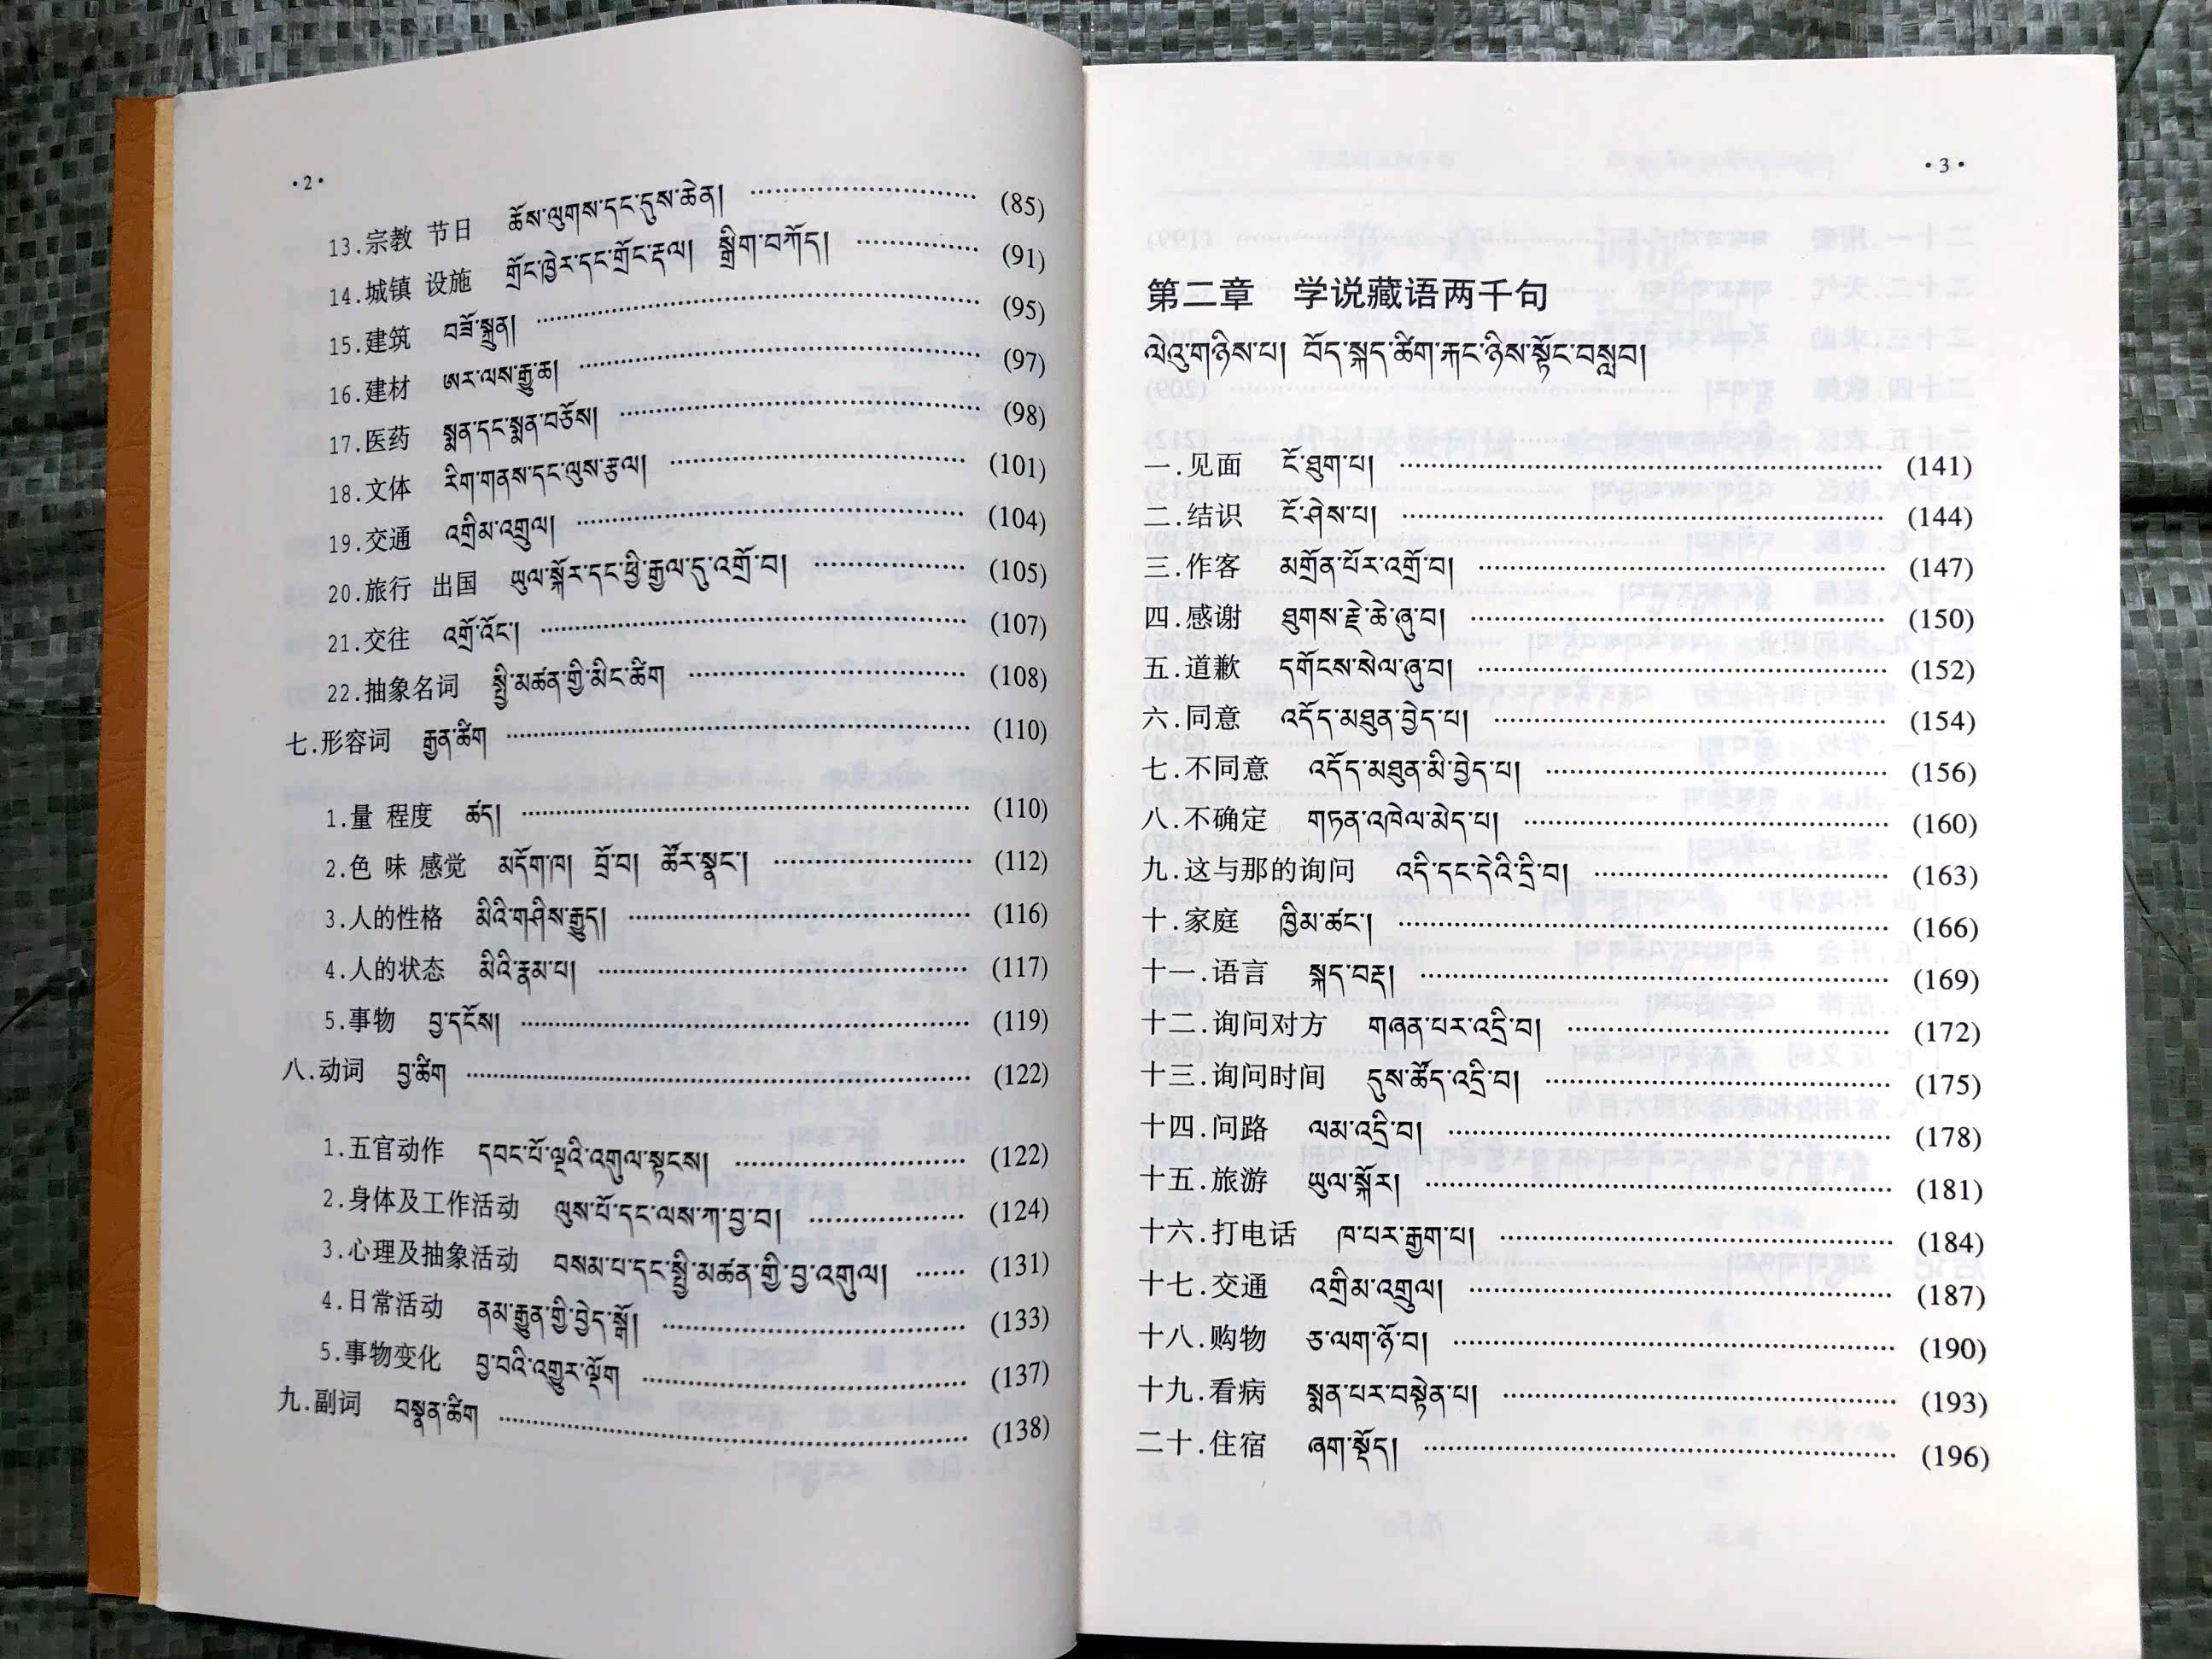 ·2·
13.宗教 节日 ཆོས་ལུགས་དང་དུས་ཆེན། ························ (85)
14.城镇 设施 གྲོང་ཁྱེར་དང་གྲོང་རྡལ། སྒྲིག་བཀོད། ············· (91)
15.建筑 བཟོ་སྐྲུན། ················································ (95)
16.建材 ཨར་ལས་རྒྱུ་ཆ། ··········································· (97)
17.医药 སྨན་དང་སྨན་བཅོས། ······································ (98)
18.文体 རིག་གནས་དང་ལུས་རྩལ། ································ (101)
19.交通 འགྲིམ་འགྲུལ། ··········································· (104)
20.旅行 出国 ཡུལ་སྐོར་དང་ཕྱི་རྒྱལ་དུ་འགྲོ་བ། ················ (105)
21.交往 འགྲོ་འོང་། ··············································· (107)
22.抽象名词 སྤྱི་མཚན་གྱི་མིང་ཚིག ······························ (108)
七.形容词 རྒྱན་ཚིག ················································ (110)
1.量 程度 ཚད། ················································ (110)
2.色 味 感觉 མདོག་ཁ། བྲོ་བ། ཚོར་སྣང་། ····················· (112)
3.人的性格 མིའི་གཤིས་རྒྱུད། ···································· (116)
4.人的状态 མིའི་རྣམ་པ། ········································ (117)
5.事物 བྱ་དངོས། ················································ (119)
八.动词 བྱ་ཚིག ····················································· (122)
1.五官动作 དབང་པོ་ལྔའི་འགུལ་སྟངས། ························· (122)
2.身体及工作活动 ལུས་པོ་དང་ལས་ཀ་བྱ་བ། ·················· (124)
3.心理及抽象活动 བསམ་པ་དང་སྤྱི་མཚན་གྱི་བྱ་འགུལ། ······ (131)
4.日常活动 ནམ་རྒྱུན་གྱི་བྱེད་སྒོ། ······························· (133)
5.事物变化 བྱ་བའི་འགྱུར་ལྡོག ·································· (137)
九.副词 བསྣན་ཚིག ················································ (138)
·3·
第二章 学说藏语两千句
ལེའུ་གཉིས་པ། བོད་སྐད་ཚིག་རྐང་ཉིས་སྟོང་བསླབ།
一.见面 ངོ་ཐུག་པ། ················································ (141)
二.结识 ངོ་ཤེས་པ། ················································ (144)
三.作客 མགྲོན་པོར་འགྲོ་བ། ······································ (147)
四.感谢 ཐུགས་རྗེ་ཆེ་ཞུ་བ། ······································· (150)
五.道歉 དགོངས་སེལ་ཞུ་བ། ······································ (152)
六.同意 འདོད་མཐུན་བྱེད་པ། ···································· (154)
七.不同意 འདོད་མཐུན་མི་བྱེད་པ། ······························· (156)
八.不确定 གཏན་འཁེལ་མེད་པ། ·································· (160)
九.这与那的询问 འདི་དང་དེའི་དྲི་བ། ····························· (163)
十.家庭 ཁྱིམ་ཚང་། ················································ (166)
十一.语言 སྐད་བརྡ། ················································ (169)
十二.询问对方 གཞན་པར་འདྲི་བ། ································ (172)
十三.询问时间 དུས་ཚོད་འདྲི་བ། ·································· (175)
十四.问路 ལམ་འདྲི་བ། ············································ (178)
十五.旅游 ཡུལ་སྐོར། ················································ (181)
十六.打电话 ཁ་པར་རྒྱག་པ། ······································ (184)
十七.交通 འགྲིམ་འགྲུལ། ··········································· (187)
十八.购物 ཅ་ལག་ཉོ་བ། ············································ (190)
十九.看病 སྨན་པར་བསྟེན་པ། ······································ (193)
二十.住宿 ཞག་སྡོད། ················································ (196)